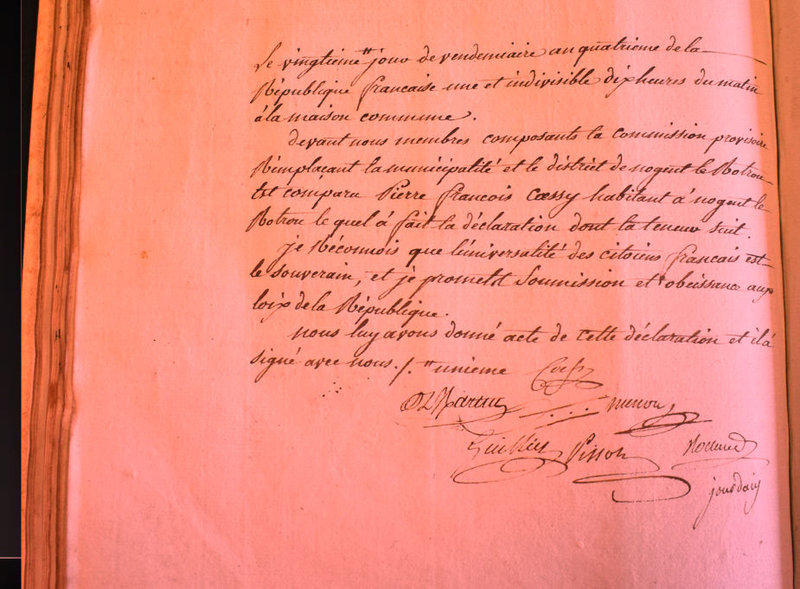 Le vingtieme " jour de vendemiaire an quatrieme de la
République francaise une et indivisible dix heures du matin
à la maison commune.
devant nous membres composants la commission provisoire
Remplaçant la municipalité et le district de nogent le Rotrou
Est comparu Pierre francois Cœssy habitant à nogent le
Rotrou le quel à fait la déclaration dont la teneur suit.
je Réconnois que l'universalité des citoiens francais est
le souverain, et je promets soumission et obeissance aux
loix de la République.
nous luy avons donné acte de cette déclaration et il à
signé avec nous./. " unieme
Pisson
jourdain